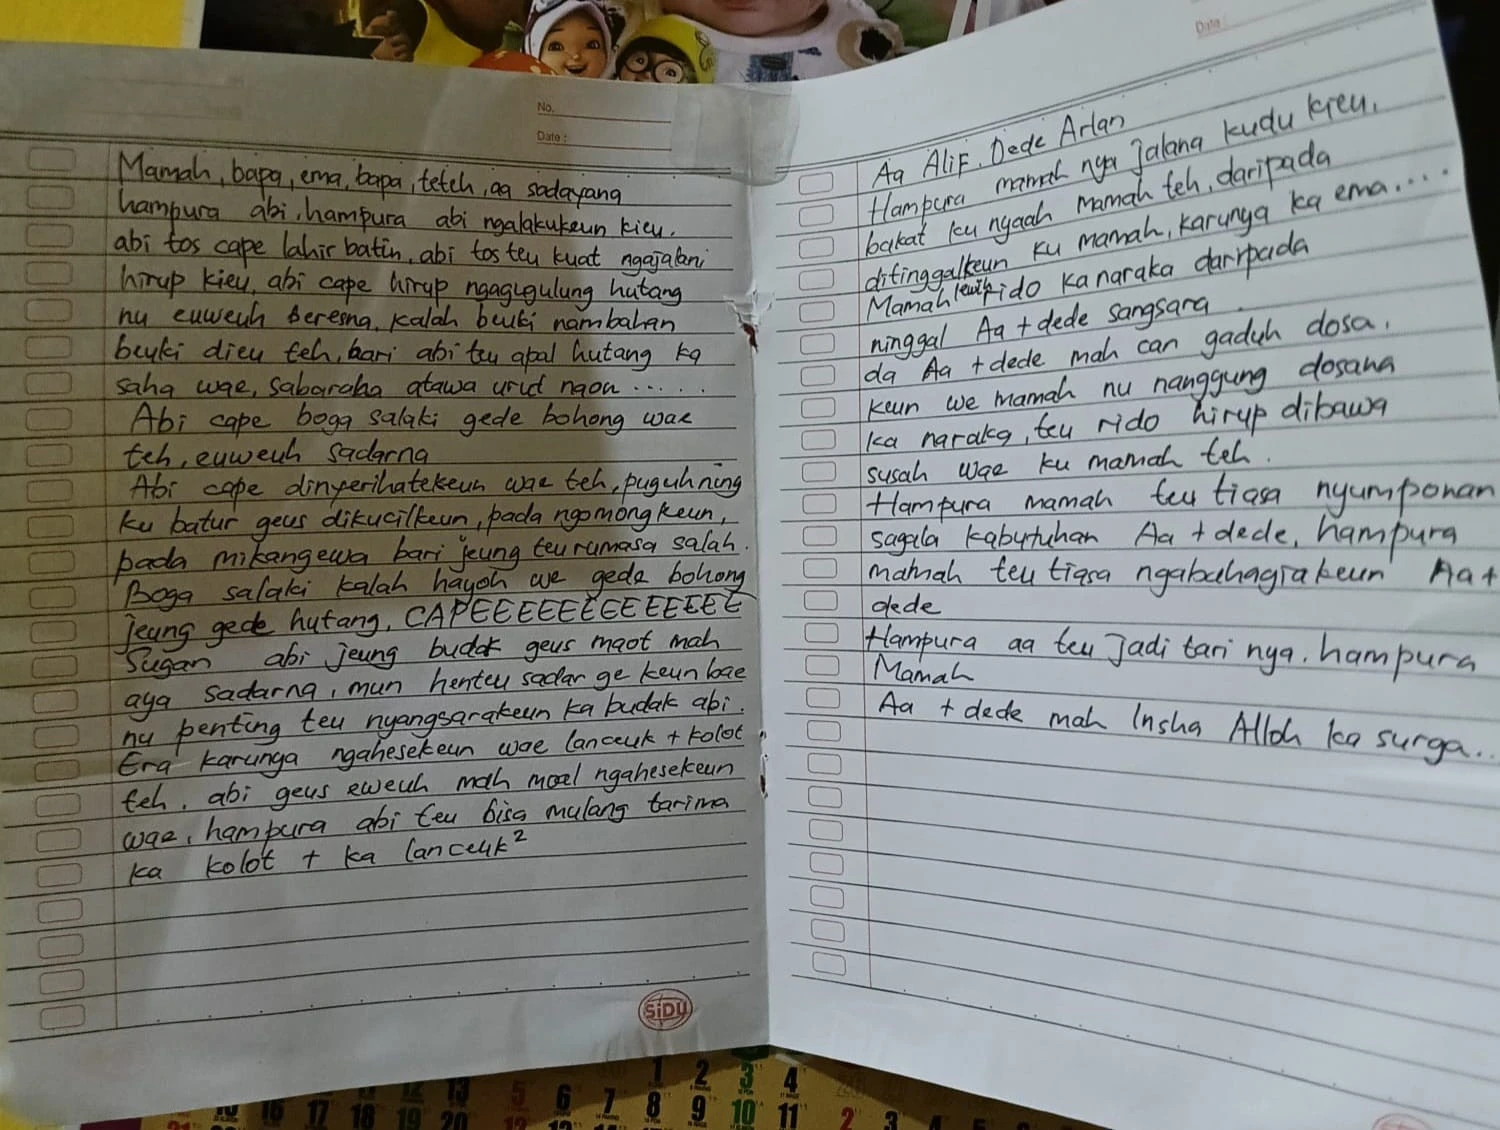 No.
Date :
Mamah, bapa, ema, bapa, teteh, aa sadayang
hampura abi, hampura abi ngalakukeun kieu.
abi tos cape lahir batin, abi tos teu kuat ngajalani
hirup kieu, abi cape hirup ngagugulung hutang
nu euweuh beresna, kalah beuki nambahan
beuki dieu teh, bari abi teu apal hutang ka
saha wae, sabaraha atawa urut naon ......
Abi cape boga salaki gede bohong wae
teh, euweuh sadarna
Abi cape dinyerihatekeun wae teh, puguh ning
ku batur geus dikucilkeun, pada ngomongkeun,
pada mikangewa bari jeung teu rumasa salah.
Boga salaki kalah hayoh we gede bohong
jeung gede hutang, CAPEEEEEEEEEEEEE
Sugan abi jeung budak geus maot mah
aya sadarna, mun henteu sadar ge keun bae
nu penting teu nyangsarakeun ka budak abi.
Era karunya ngahesekeun wae lanceuk + kolot
teh, abi geus eweuh mah moal ngahesekeun
wae, hampura abi teu bisa mulang tarima
ka kolot + ka lanceuk²
SiDU
Date :
Aa Alif, Dede Arlan
Hampura mamah nya jalana kudu kieu.
bakat ku nyaah mamah teh, daripada
ditinggalkeun ku mamah, karunya ka ema....
Mamah lewih rido ka naraka daripada
ninggal Aa + dede sangsara.
da Aa + dede mah can gaduh dosa.
keun we mamah nu nanggung dosana
ka naraka, teu rido hirup dibawa
susah wae ku mamah teh.
Hampura mamah teu tiasa nyumponan
sagala kabutuhan Aa + dede, hampura
mamah teu tiasa ngabahagiakeun Aa +
dede
Hampura aa teu jadi tari nya. hampura
Mamah
Aa + dede mah Insha Alloh ka surga..
1 2 3 4
12 13 5 6 7 8 9 10 11
16 17 18 19 20 12
2 3 4